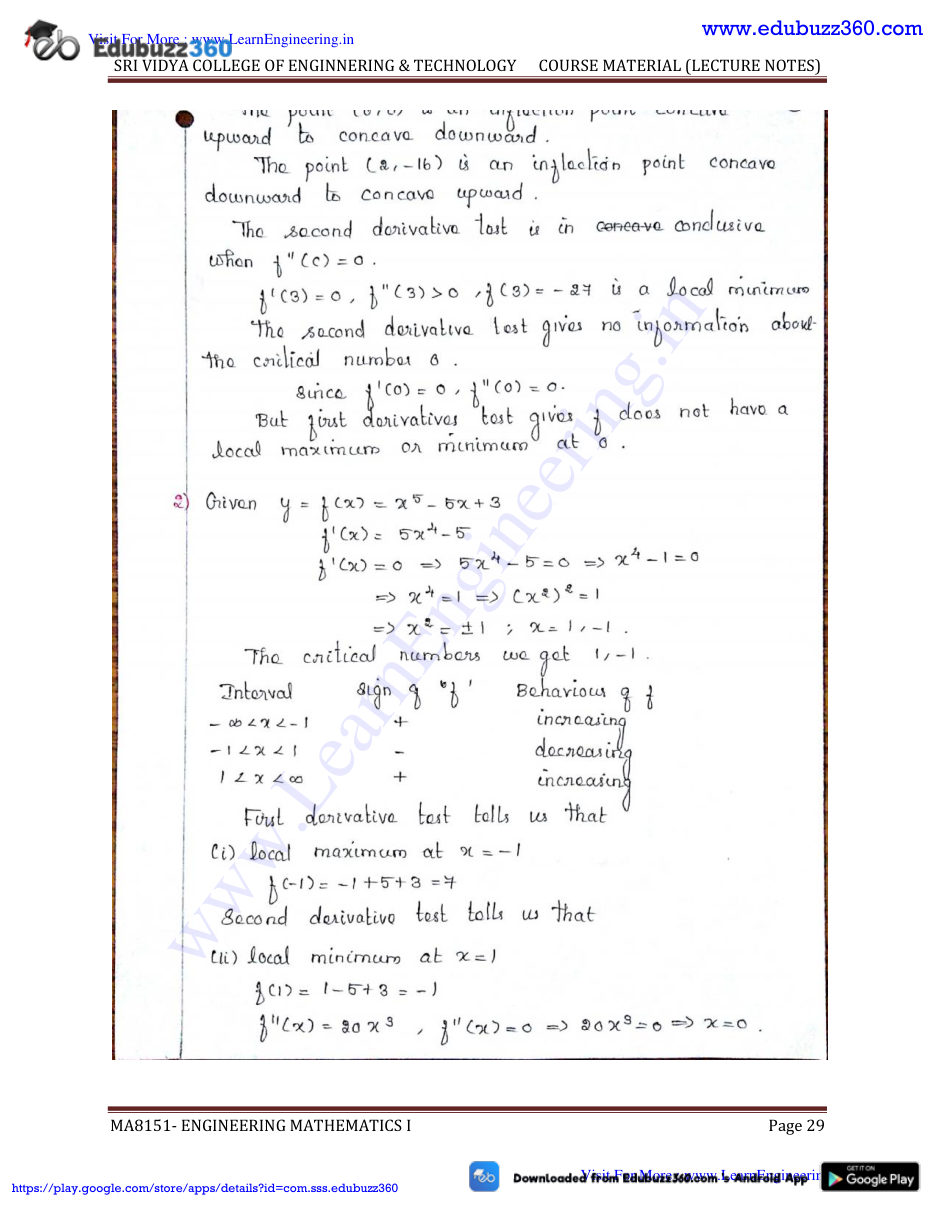 Visit For More : www.LearnEngineering.in
www.edubuzz360.com
Edubuzz360
SRI VIDYA COLLEGE OF ENGINNERING & TECHNOLOGY COURSE MATERIAL (LECTURE NOTES)
The point (0,0) is an inflection point concave
upward to concave downward.
The point (2,-16) is an inflection point concave
downward to concave upward.
The second derivative test is in concave conclusive
when f''(c) = 0.
f'(3) = 0, f''(3) > 0, f(3) = -27 is a local minimum
The second derivative test gives no information about
the critical number 0.
Since f'(0) = 0, f''(0) = 0.
But first derivatives test gives f does not have a
local maximum or minimum at 0.
2) Given y = f(x) = x⁵ - 5x + 3
f'(x) = 5x⁴ - 5
f'(x) = 0 => 5x⁴ - 5 = 0 => x⁴ - 1 = 0
=> x⁴ = 1 => (x²)² = 1
=> x² = ±1 ; x = 1, -1.
The critical numbers we get 1, -1.
Interval Sign of "f' Behaviour of f
-∞ < x < -1 + increasing
-1 < x < 1 - decreasing
1 < x < ∞ + increasing
First derivative test tells us that
(i) local maximum at x = -1
f(-1) = -1 + 5 + 3 = 7
Second derivative test tells us that
(ii) local minimum at x = 1
f(1) = 1 - 5 + 3 = -1
f''(x) = 20x³, f''(x) = 0 => 20x³ = 0 => x = 0.
www.LearnEngineering.in
MA8151- ENGINEERING MATHEMATICS I Page 29
Downloaded from EduBuzz360.com 's Android App
Visit For More : www.LearnEngineering.in
GET IT ON
Google Play
https://play.google.com/store/apps/details?id=com.sss.edubuzz360